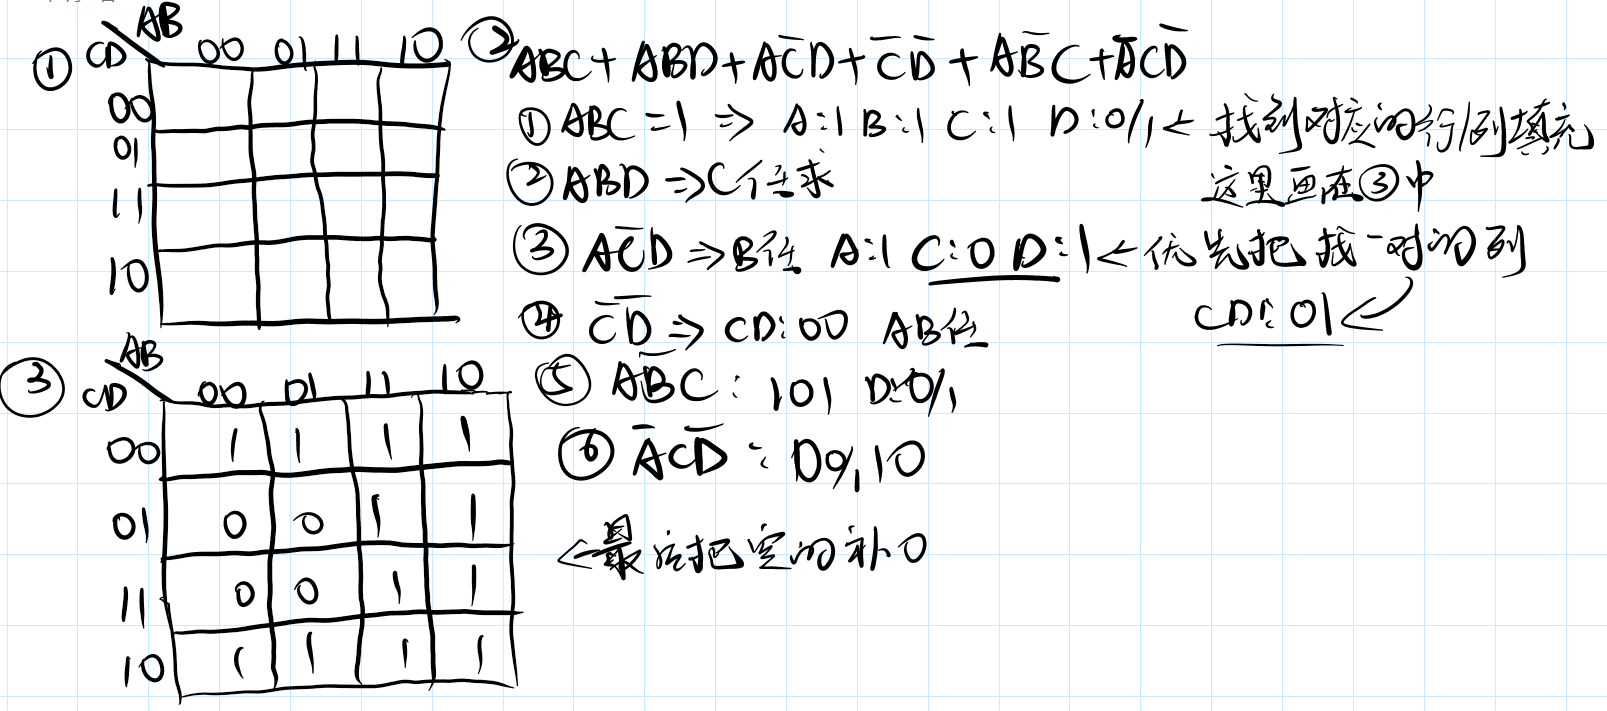 ① AB CD 00 01 11 10
00
01
11
10
② ABC + ABD + AC̅D + C̅D̅ + AB̅C + A̅CD̅
① ABC = 1 ⇒ A:1 B:1 C:1 D:0/1 ← 找到对应的行/列填充
这里画在③中
② ABD ⇒ C任求
③ AC̅D ⇒ B任 A:1 C:0 D:1 ← 优先把找一对的列
CD: 01
④ C̅D̅ ⇒ CD:00 AB任
⑤ AB̅C: 101 D:0/1
⑥ A̅CD̅: D0/1 10
← 最后把空的补0
③ AB CD 00 01 11 10
00 1 1 1 1
01 0 0 1 1
11 0 0 1 1
10 1 1 1 1